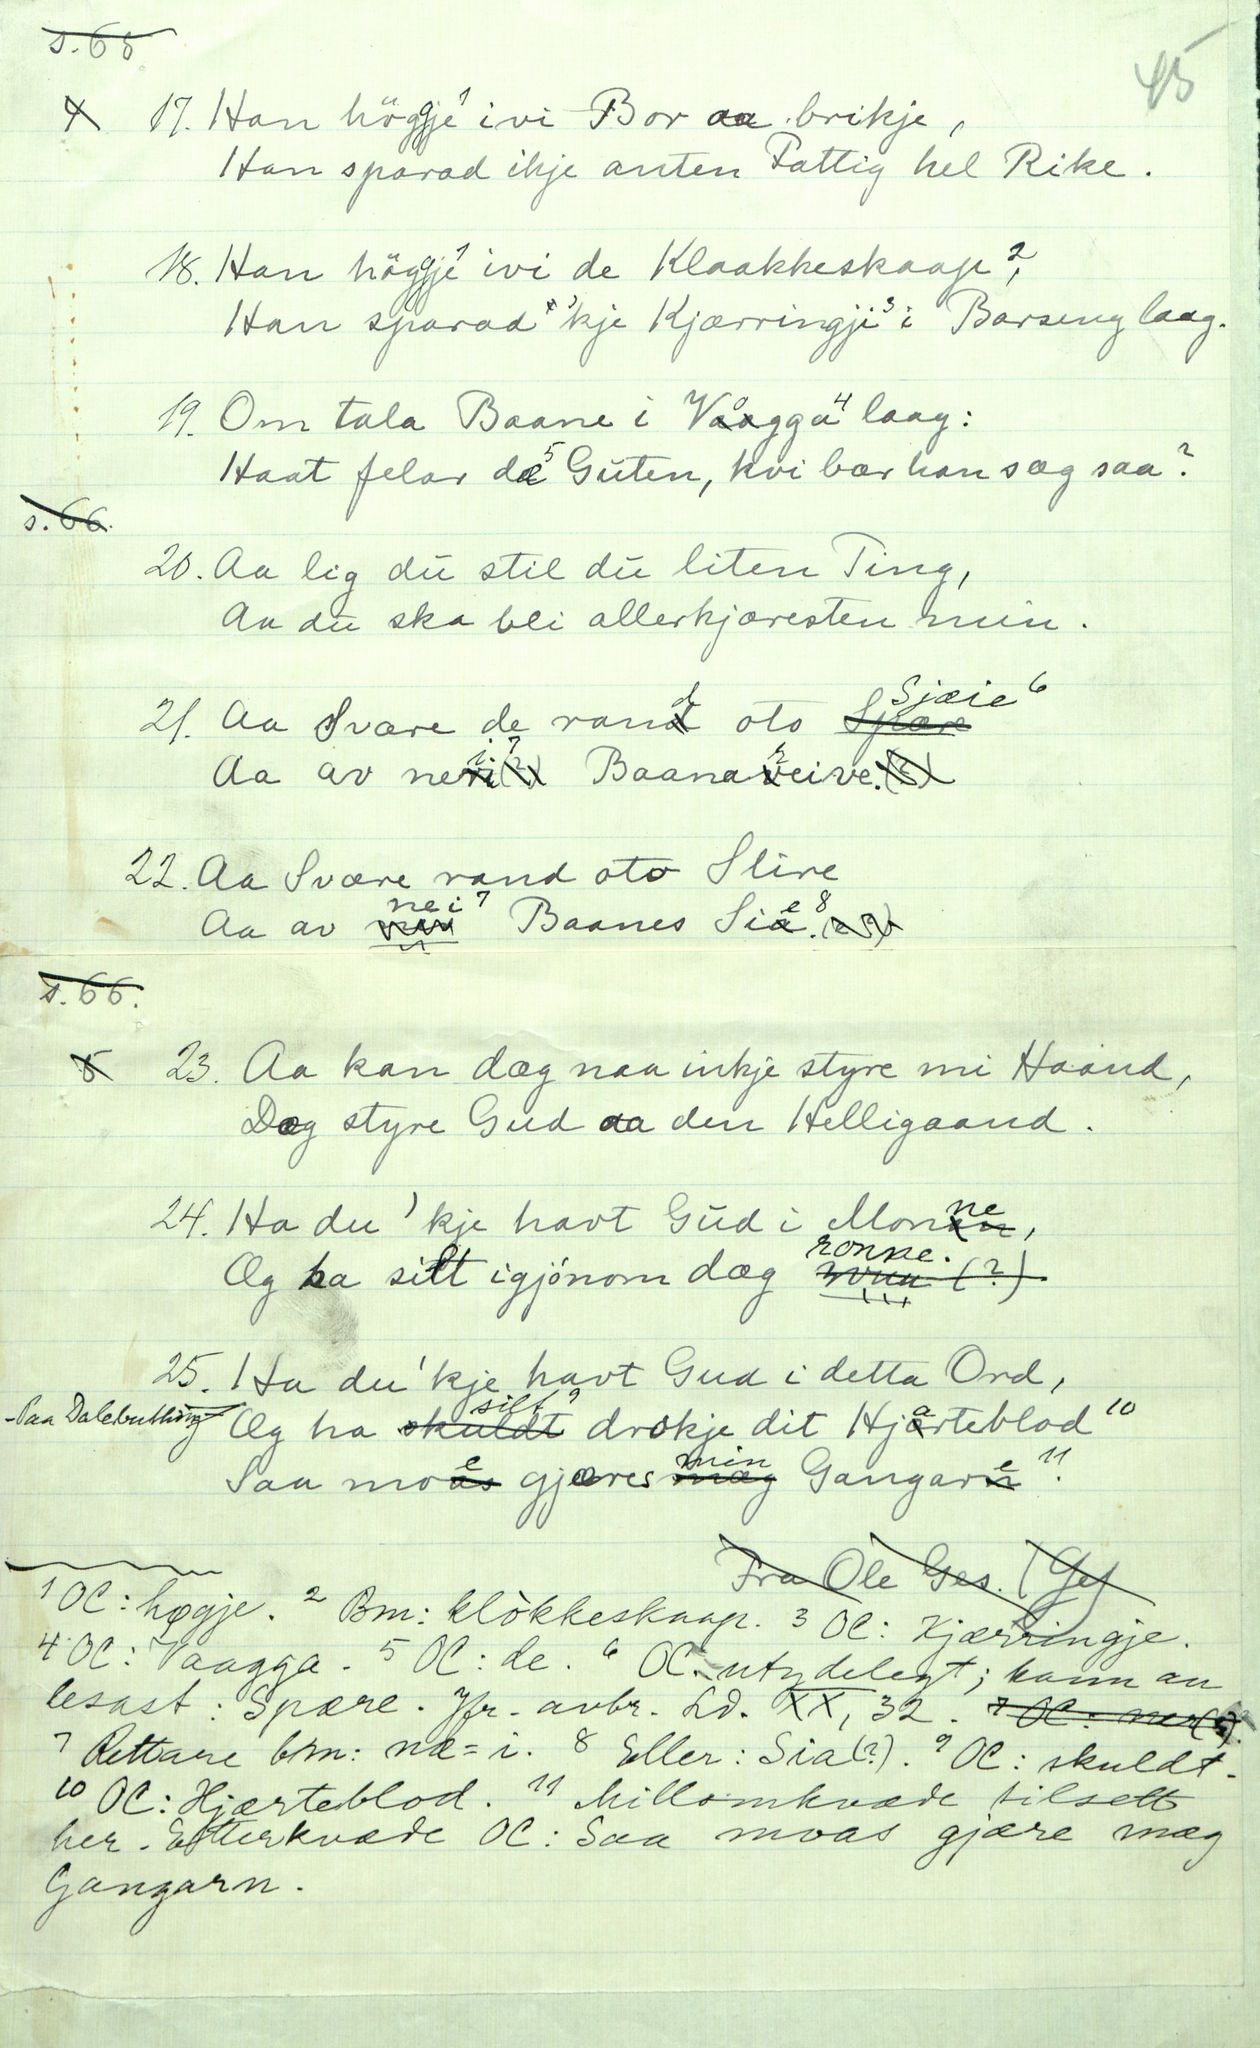 s. 65
45
4 17. Han höggje¹ ivi Bor aa brikje,
Han sparad ikje anten Fattig hel Rike.
18. Han höggje¹ ivi de Klaakkeskaap²,
Han sparad 'kje Kjærringji³ i Barseng laag.
19. Om tala Baane i Vaagga⁴ laag:
Haat felar dæ⁵ Guten, kvi bær han sæg saa?
s. 66.
20. Aa lig du stil du liten Ting,
Aa du ska bli allerkjæresten min.
21. Aa Svære de rand oto Spære Sjæie⁶
Aa av neri(?) i⁷ Baanareive.(?)
22. Aa Svære rand oto Slire
Aa av nei⁷ Baanes Sie⁸.
s. 66.
5 23. Aa kan dæg naa inkje styre mi Haand,
Dæg styre Gud aa den Helligaand.
24. Ha du 'kje havt Gud i Monne,
Æg ha silt igjónom dæg ronne. (?)
25. Ha du 'kje havt Gud i detta Ord,
-Paa Dalebutling Æg ha skuldt silt⁹ drokje dit Hjarteblod¹⁰
Saa moas e gjæres mæg min Gangare¹¹.
Fra Ole Ges. (Ge)
¹ OC: høgje. ² Bm: klòkkeskaap. ³ OC: Kjærringje.
⁴ OC: Vaagga. ⁵ OC: de. ⁶ OC: utydelegt; kann au
lesast: Spære. Jfr. avbr. Ld. XX, 32. ⁷ OC: ner(?).
⁷ Rettare bm: næ = i. ⁸ Eller: Sia(?). ⁹ OC: skuldt.
¹⁰ OC: Hjærteblod. ¹¹ Millomkvæde tilsett
her. Etterkvæde OC: Saa moas gjære mæg
Gangarn.